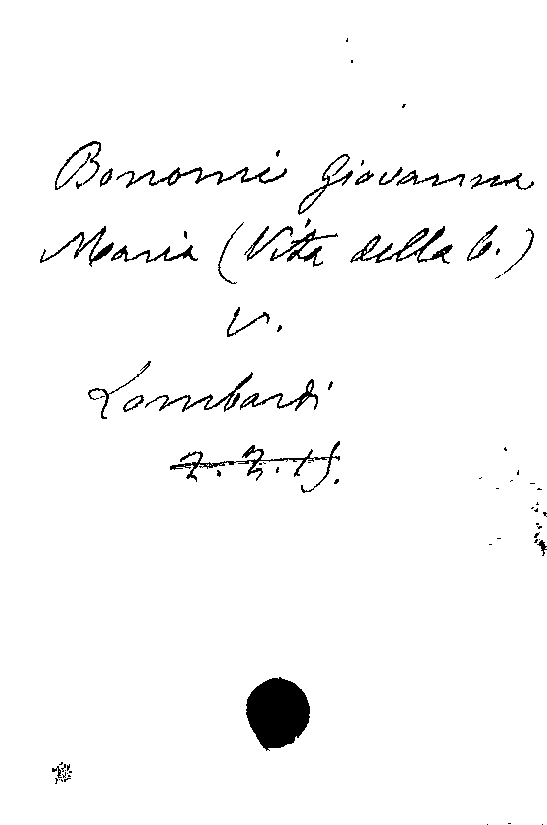 Bonomi Giovanna
Maria (Vita della b.)
v.
Lombardi